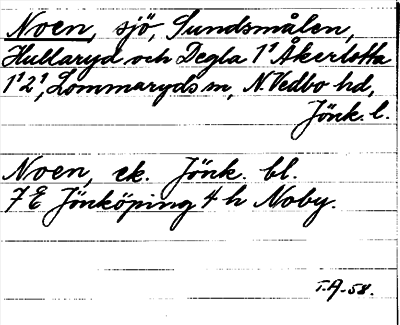 Noen, sjö, Sundsmålen,
Hullaryd och Degla 1¹ Åkerlotta
1¹2¹, Lommaryds sn, N. Vedbo hd,
Jönk. l.
Noen, ek. Jönk. bl.
7 E Jönköping 4 h Noby.
T.A. 58.